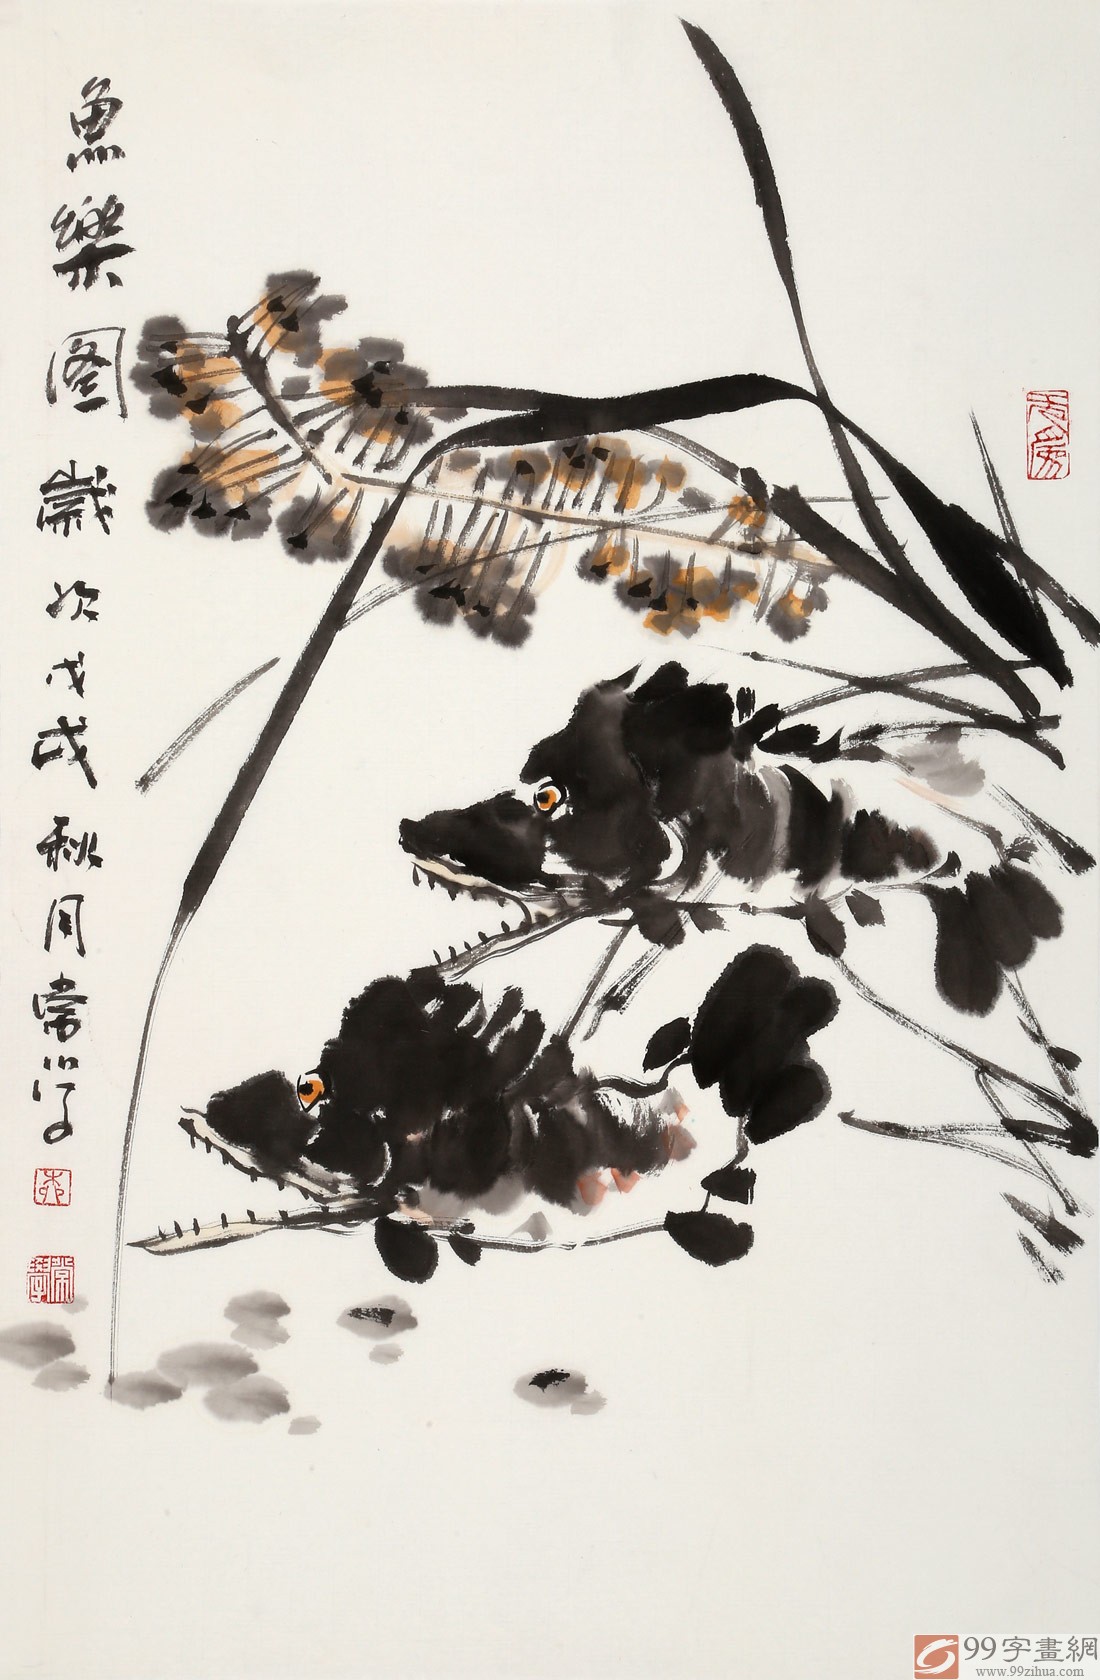 魚樂图歲次戊戌秋月常學
99字畫網
www.99zihua.com